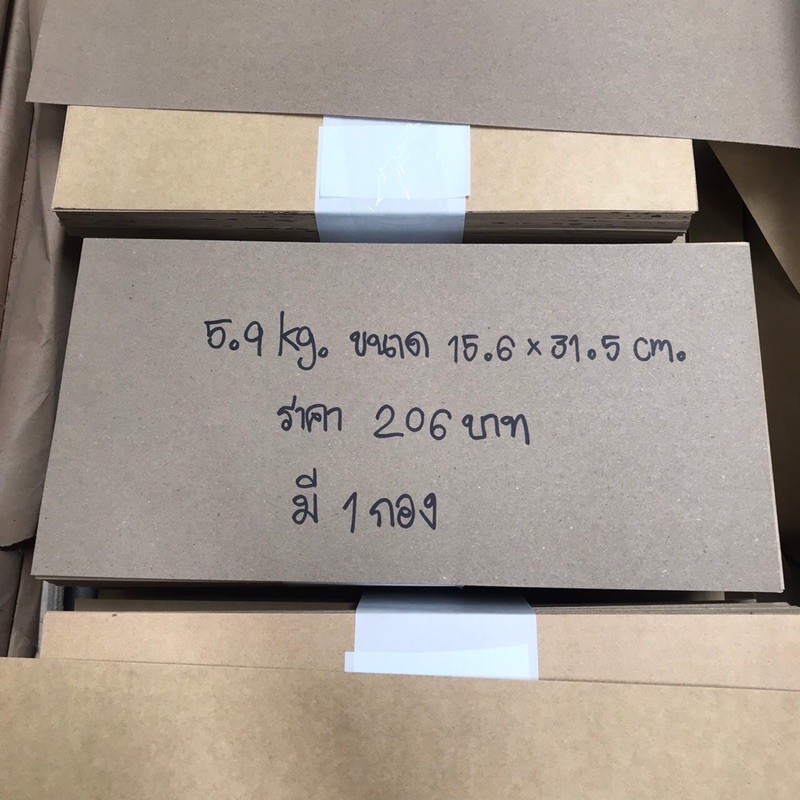 5.9 kg. ขนาด 15.6 × 31.5 cm.
ราคา 206 บาท
มี 1 กอง